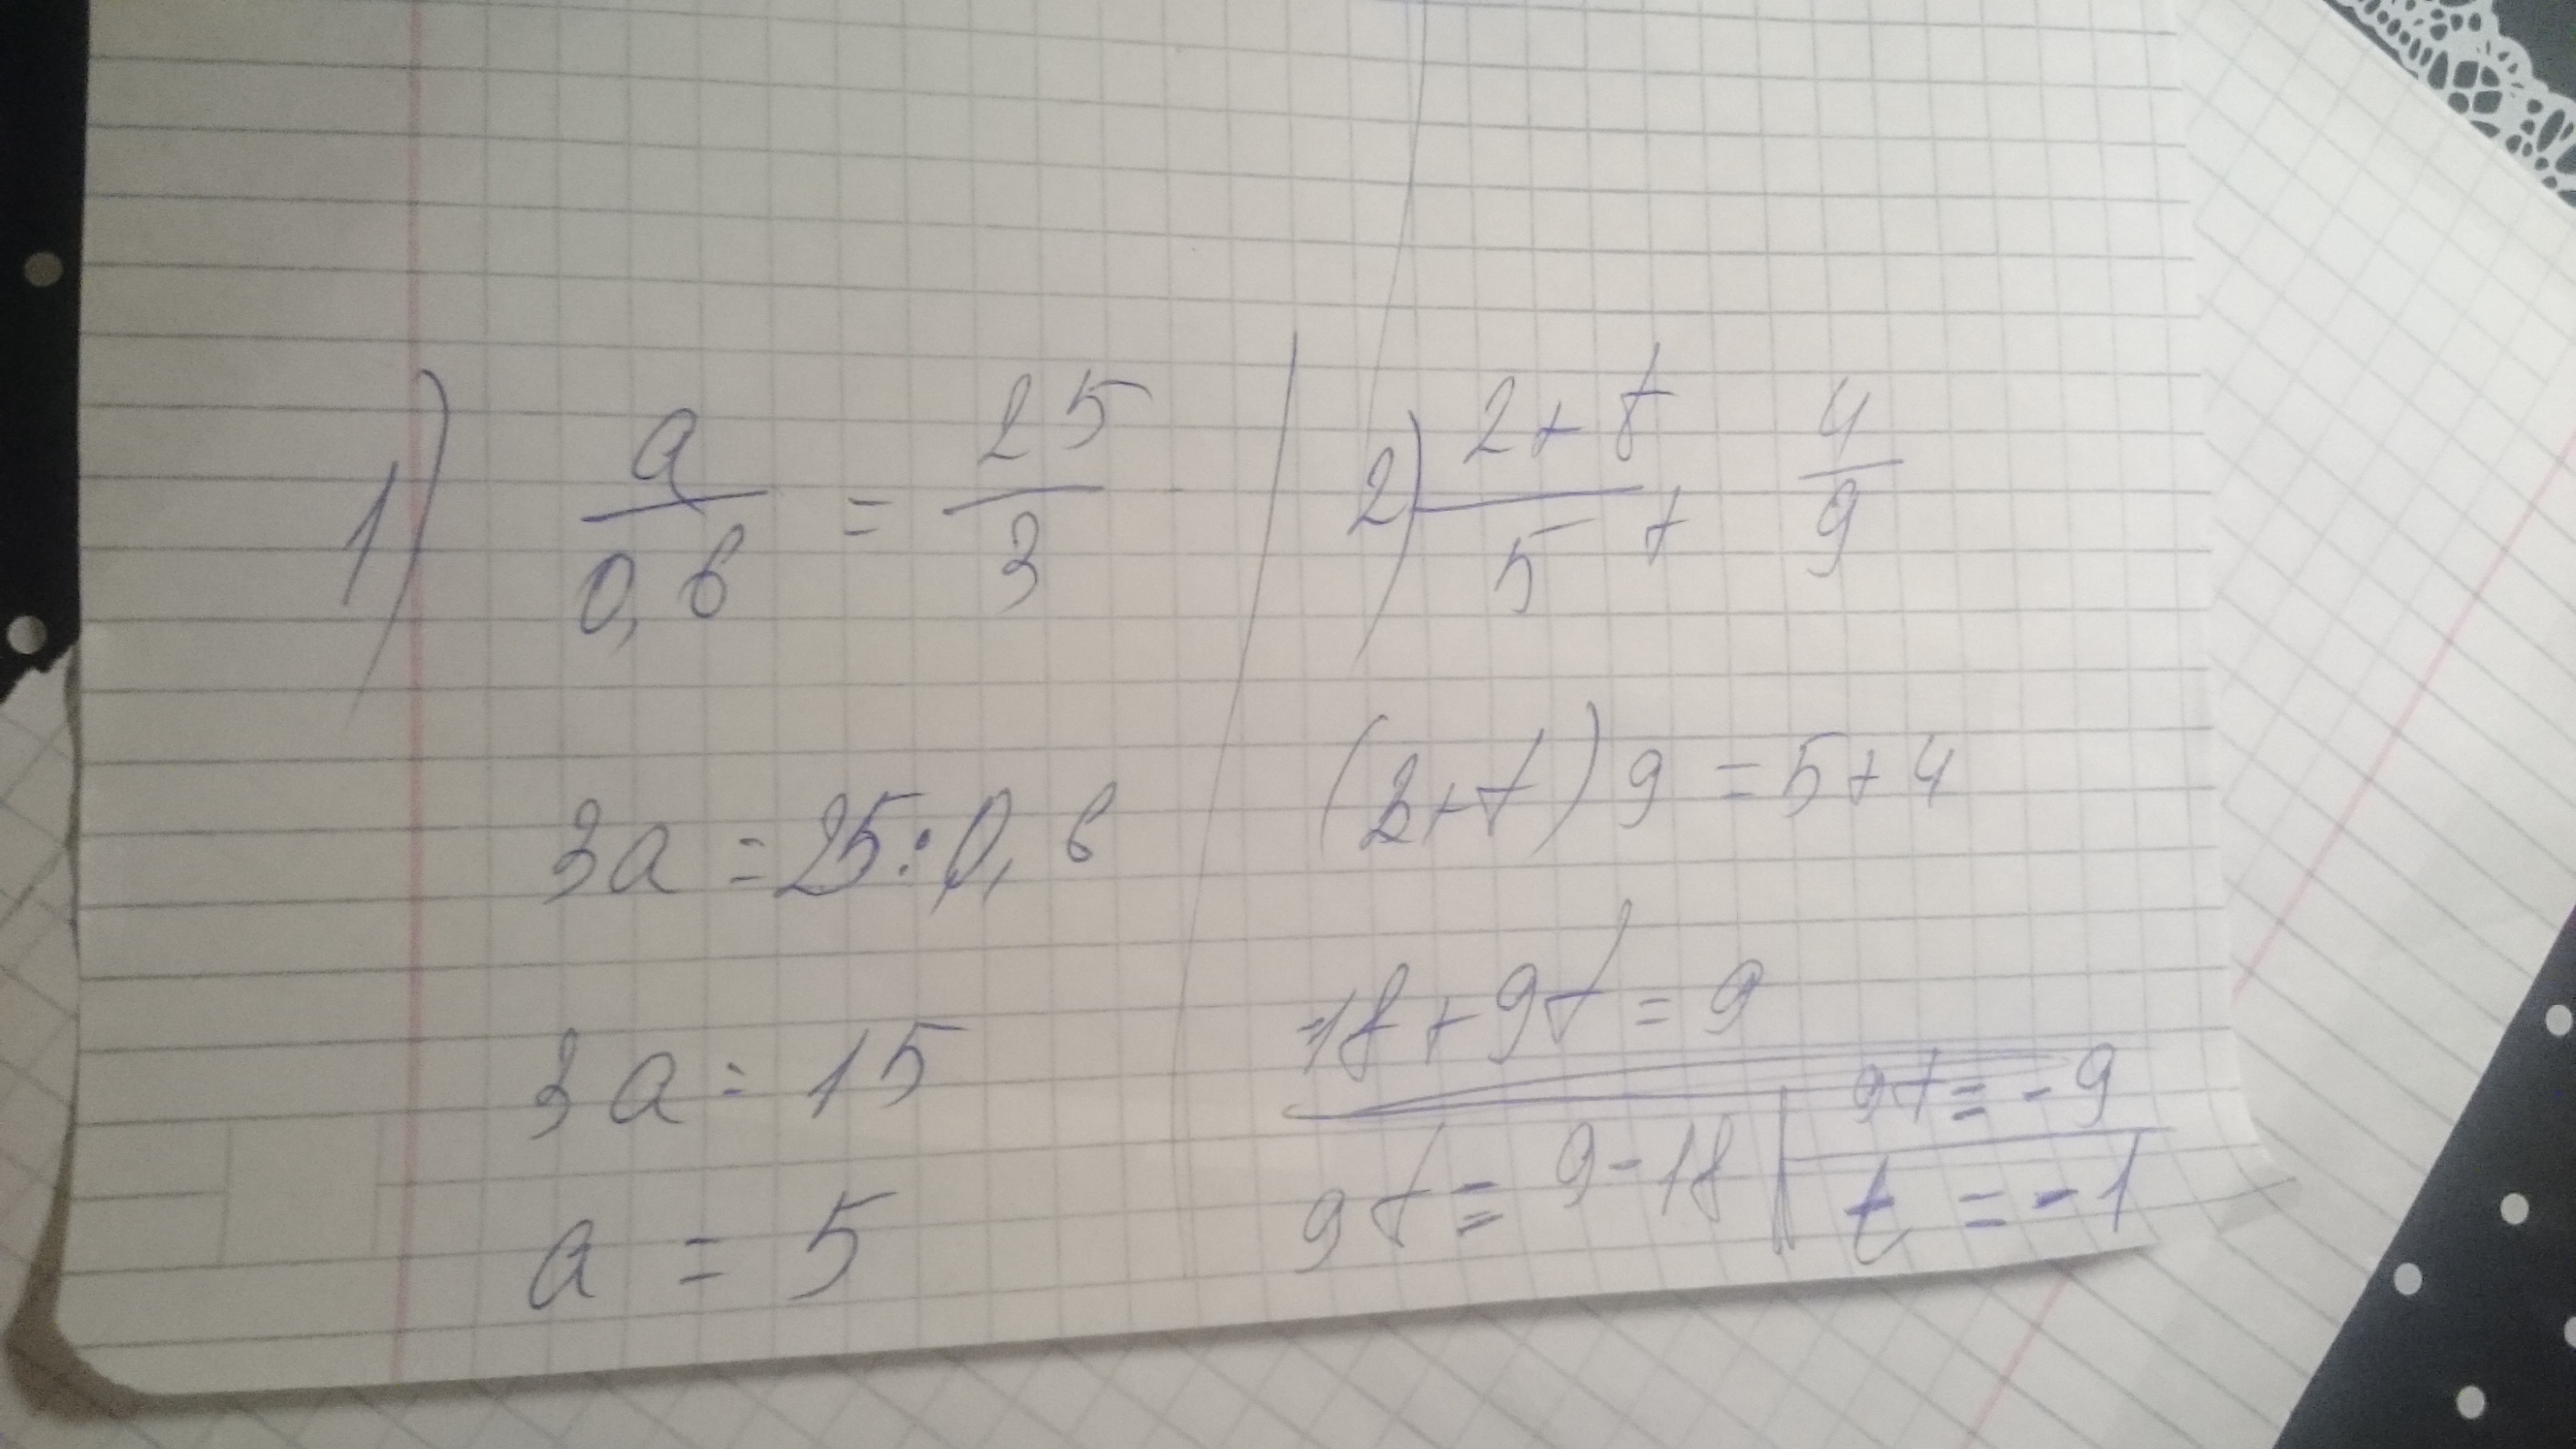 1) a/0,6 = 25/3
3a = 25:0,6
3a = 15
a = 5
2) (2+t)/5 + 4/9
(2+t)9 = 5+4
18+9t = 9
9t = 9-18
9t = -9
t = -1